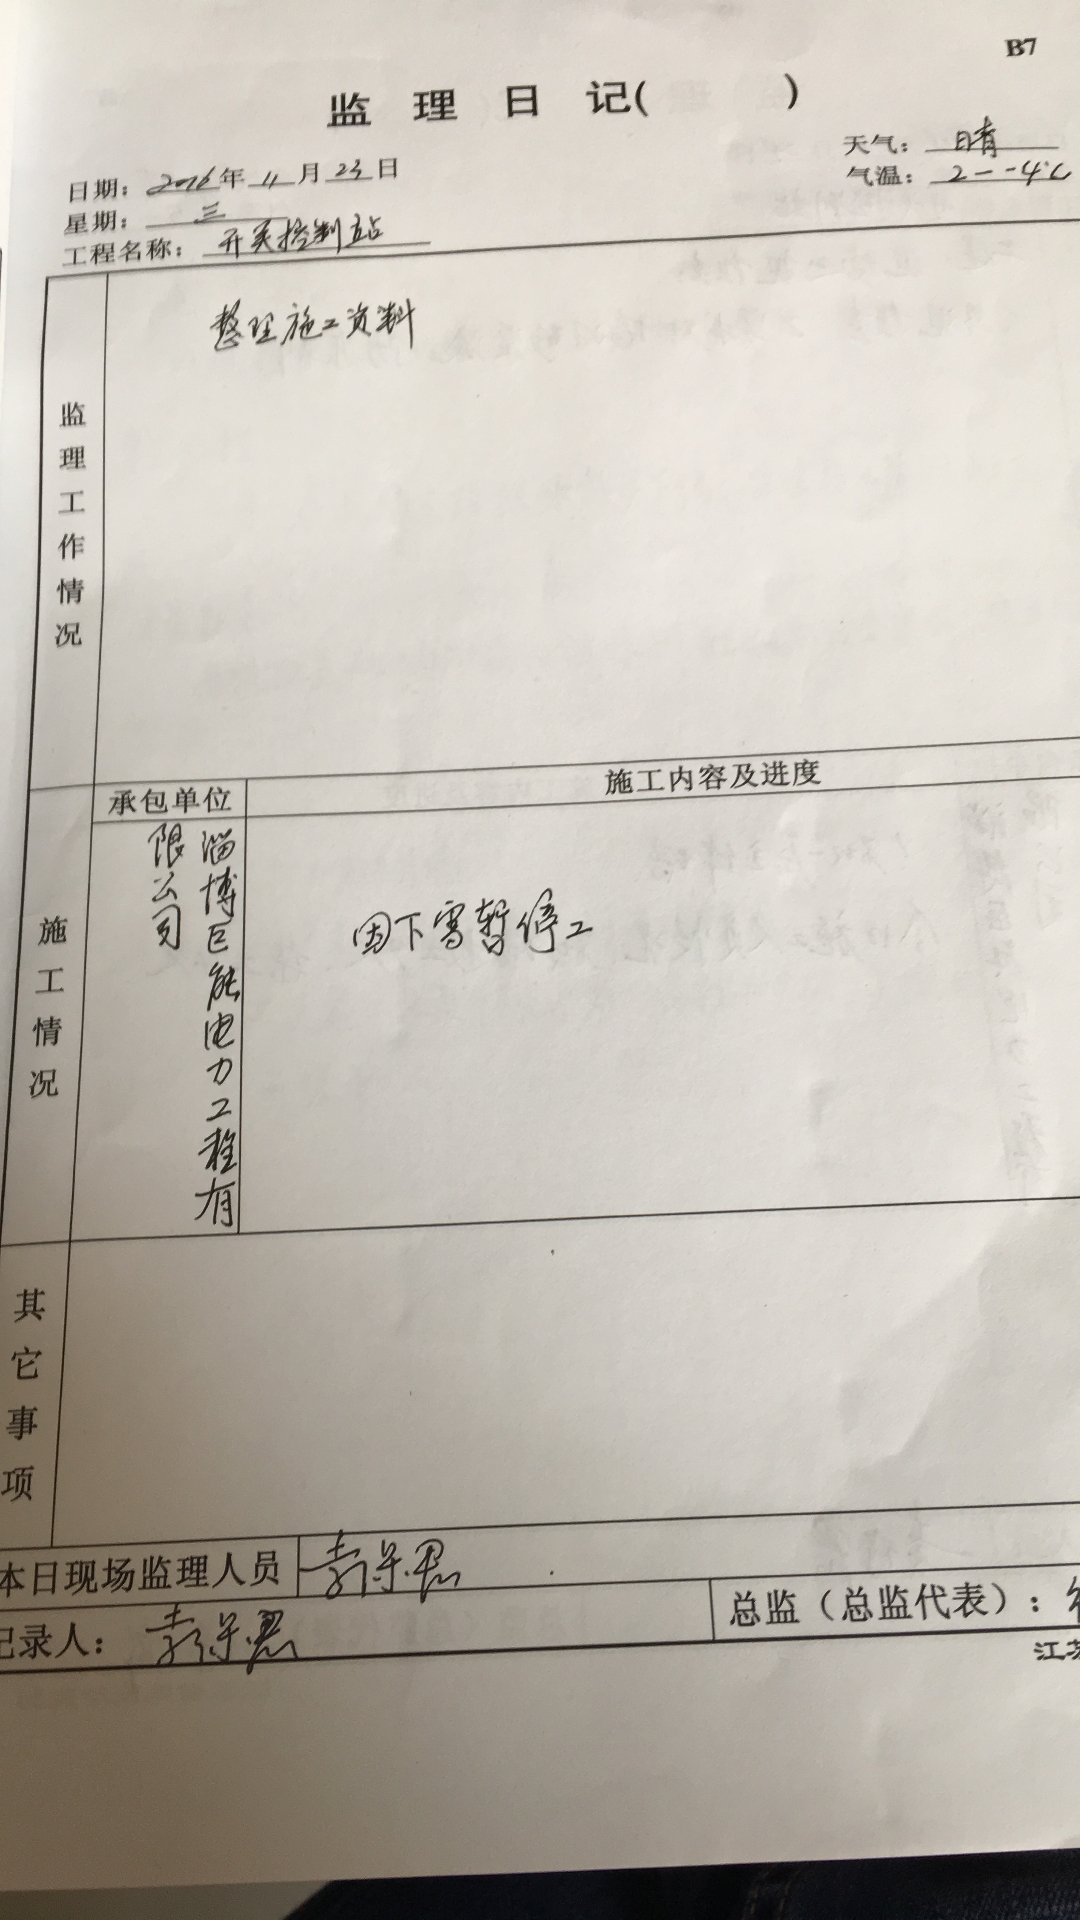 B7
监 理 日 记( )
日期：2016年 11 月 23 日
天气：晴
星期：三
气温：2--4℃
工程名称：开关控制站
监理工作情况
整理施工资料
施工情况
承包单位
施工内容及进度
淄博巨能电力工程有
限公司
因下雪暂停工
其它事项
本日现场监理人员
记录人：
总监（总监代表）：
江苏